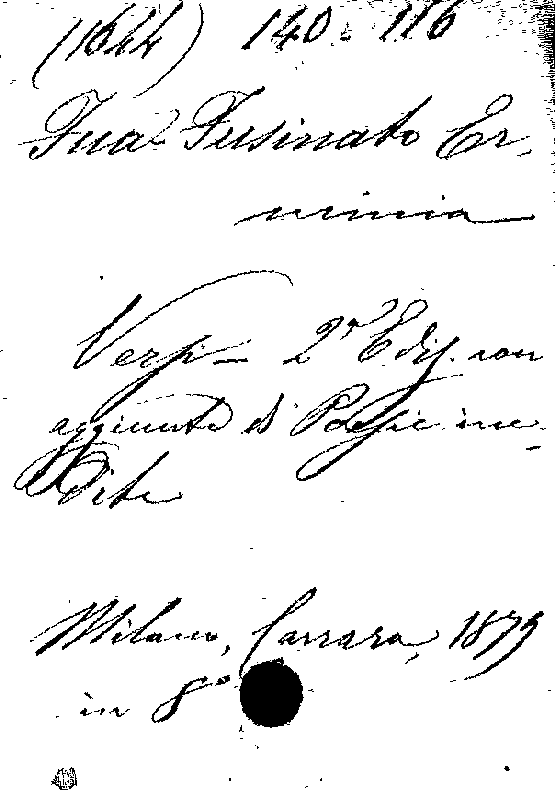 (1644) 140. 116
Fuà-Fusinato Er-
minia
Versi - 2ª Ediz. con
aggiunta di Poesie ine-
dite
Milano, Carrara, 1879
in 8°